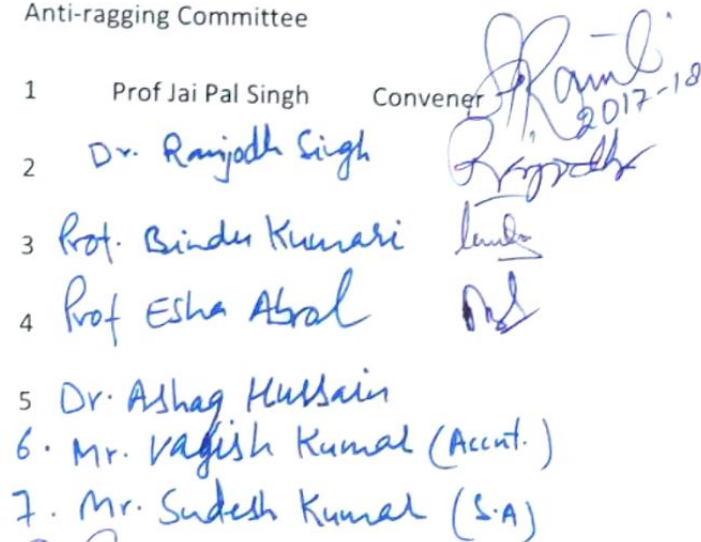 Anti-ragging Committee
1 Prof Jai Pal Singh Convener 2017-18
2 Dr. Ranjodh Singh
3 Prof. Bindu Kumari
4 Prof Esha Abrol
5 Dr. Ashaq Hussain
6. Mr. Vagish Kumar (Accnt.)
7. Mr. Sudesh Kumar (S.A)